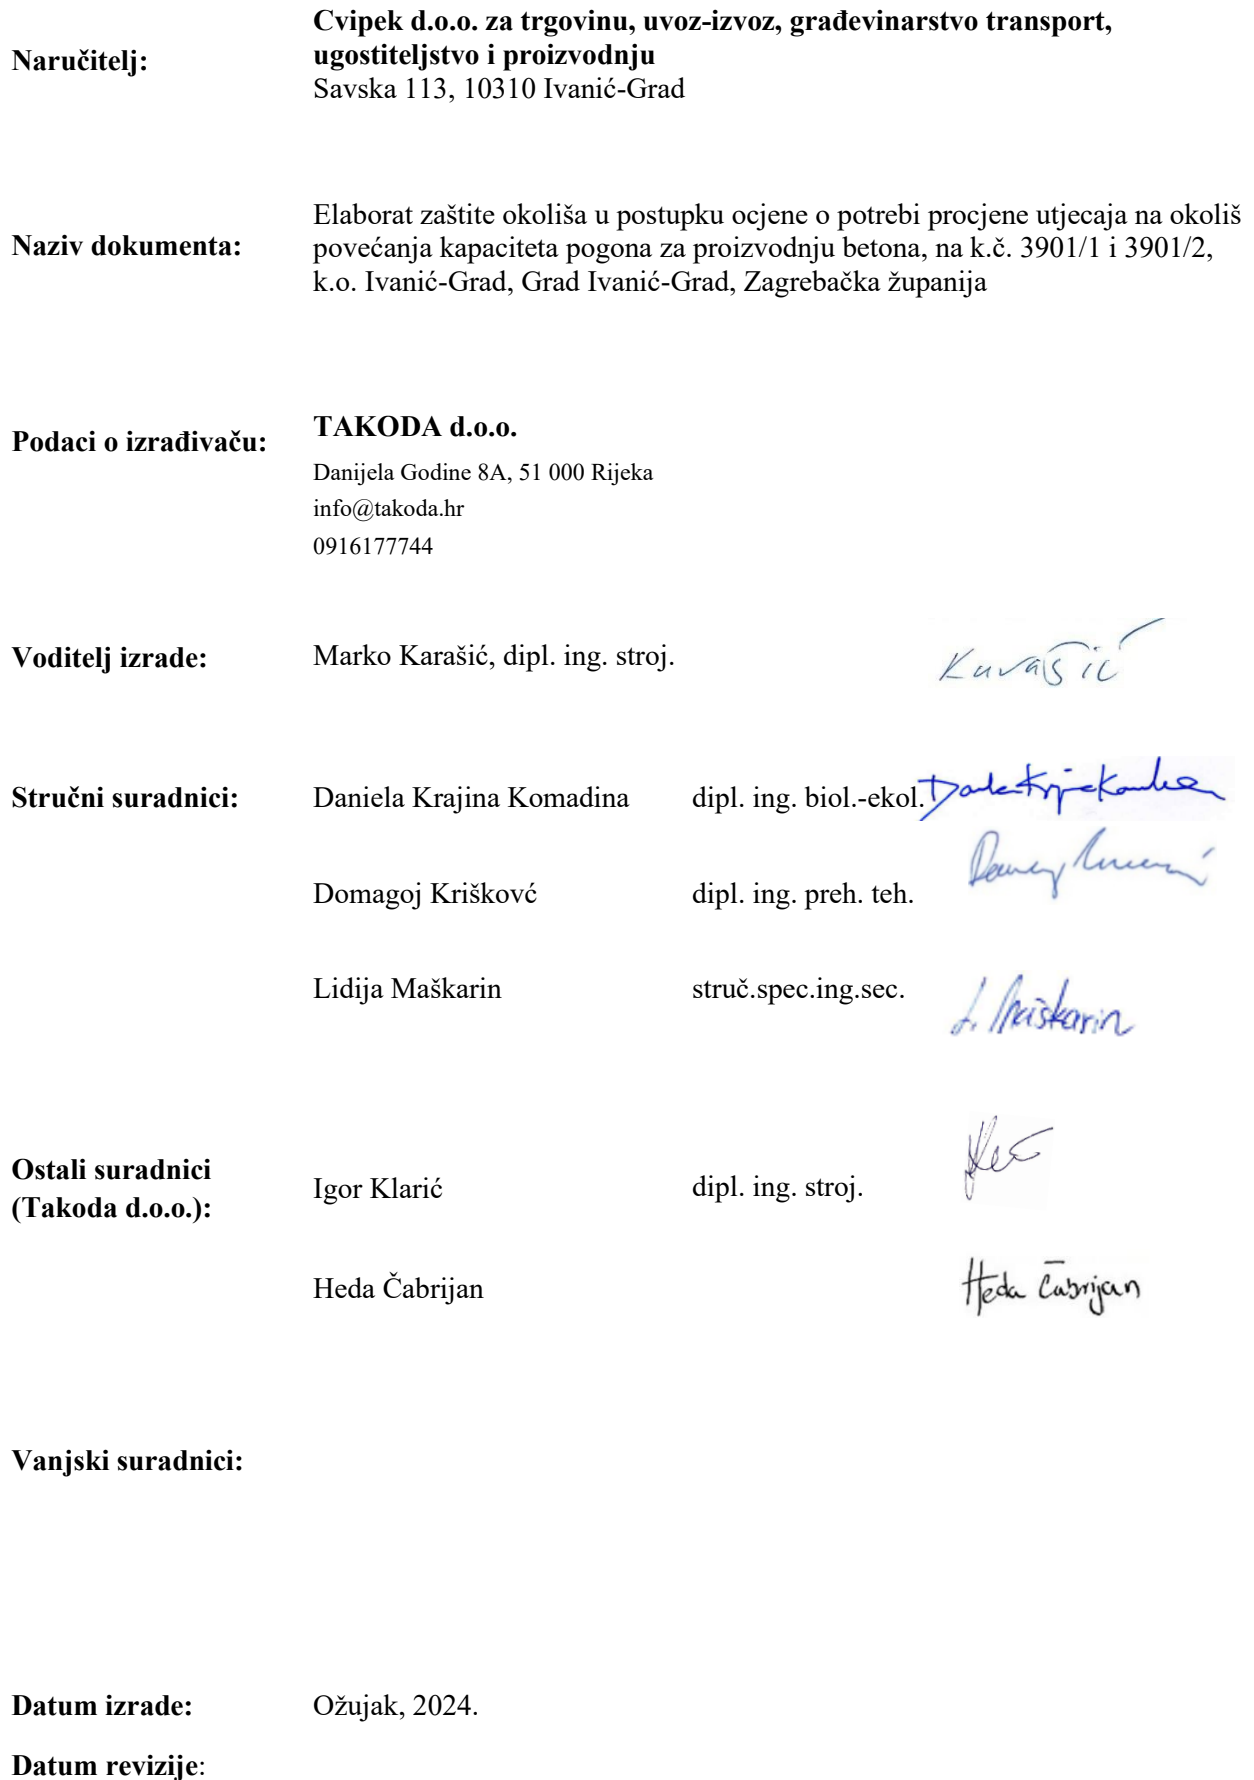 Naručitelj:
Cvipek d.o.o. za trgovinu, uvoz-izvoz, građevinarstvo transport,
ugostiteljstvo i proizvodnju
Savska 113, 10310 Ivanić-Grad
Naziv dokumenta:
Elaborat zaštite okoliša u postupku ocjene o potrebi procjene utjecaja na okoliš
povećanja kapaciteta pogona za proizvodnju betona, na k.č. 3901/1 i 3901/2,
k.o. Ivanić-Grad, Grad Ivanić-Grad, Zagrebačka županija
Podaci o izrađivaču:
TAKODA d.o.o.
Danijela Godine 8A, 51 000 Rijeka
info@takoda.hr
0916177744
Voditelj izrade: Marko Karašić, dipl. ing. stroj. Karašić
Stručni suradnici: Daniela Krajina Komadina dipl. ing. biol.-ekol.
Domagoj Kriškovć dipl. ing. preh. teh.
Lidija Maškarin struč.spec.ing.sec. L. Maškarin
Ostali suradnici
(Takoda d.o.o.):
Igor Klarić dipl. ing. stroj.
Heda Čabrijan Heda Čabrijan
Vanjski suradnici:
Datum izrade: Ožujak, 2024.
Datum revizije: